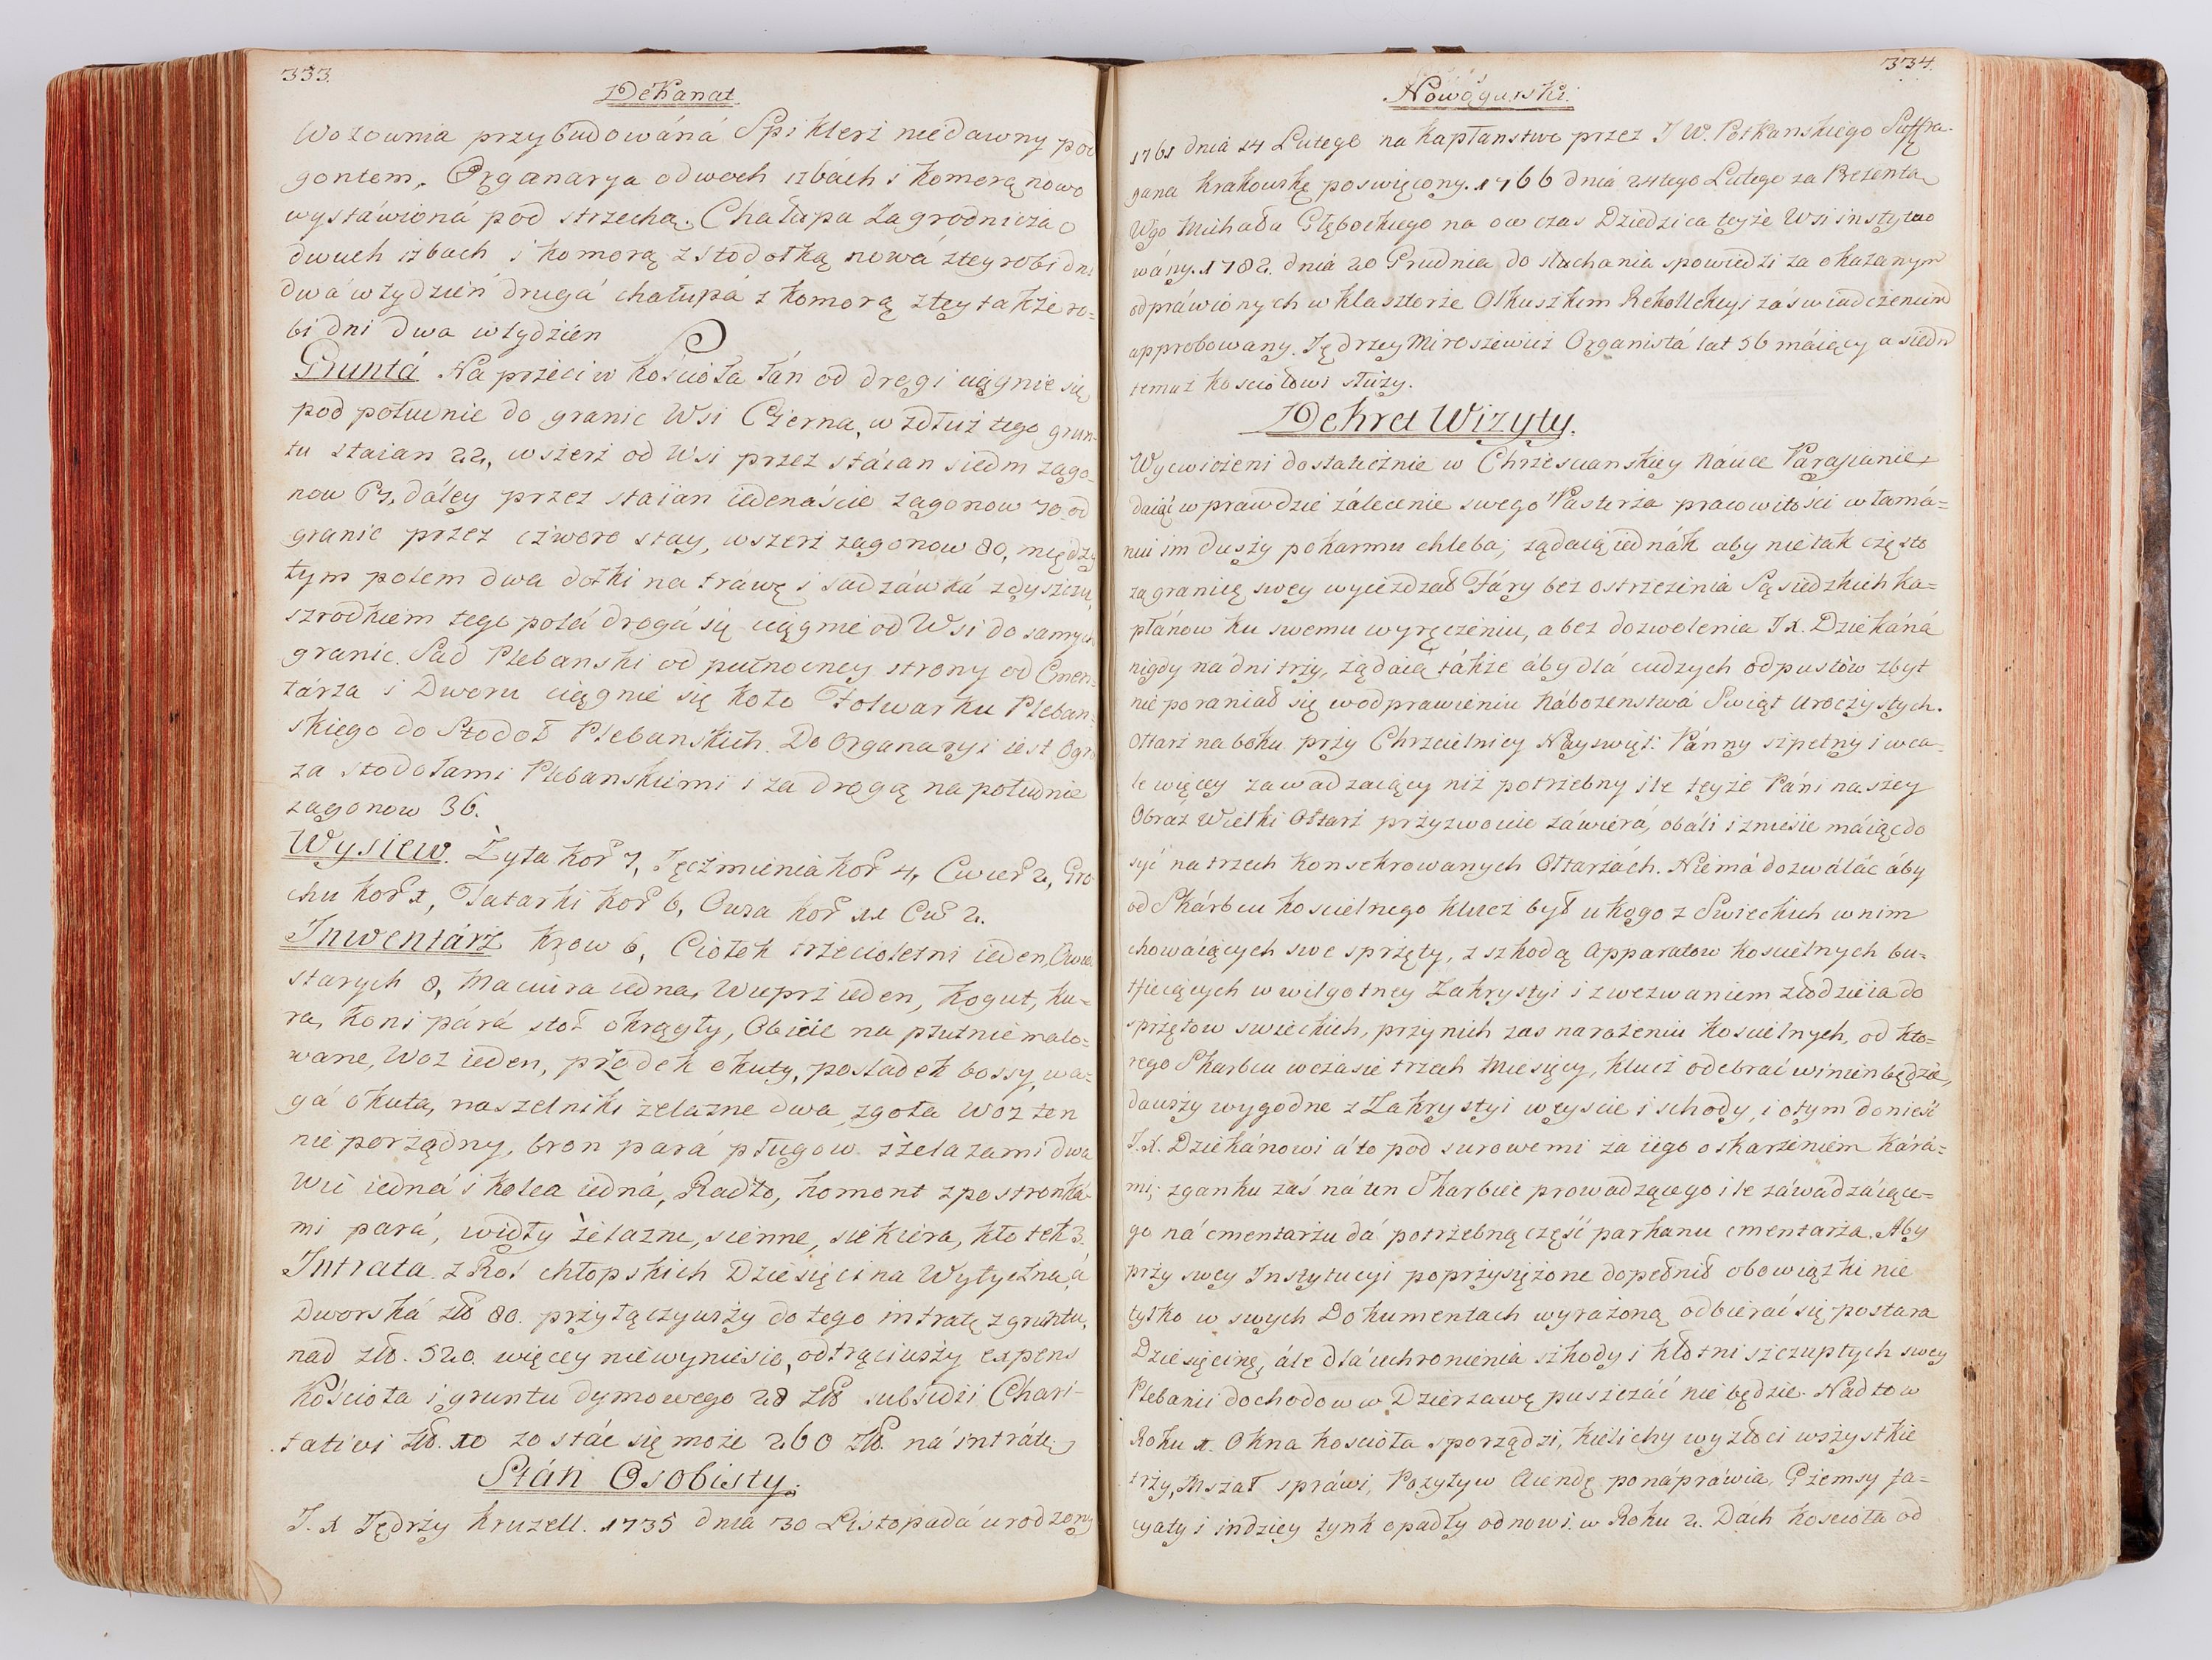 333.
Dekanat
Wozownia przybudowáná Spiklerz niedawny pod
gontem, Organarya o dwoch izbách i komorą nowo
wystáwioná pod strzechą. Chałupa Zagrodnicza o
dwuch izbach i komorą z stodołką nowá z tey robi dni
dwá w tydzień drugá chałupá z komorą z tey także ro=
bi dni dwa w tydzien
Gruntá Na przeciw Kościoła łán od drogi ciągnie się
pod południe do granic Wsi Czerna, w zdłuż tego grun-
tu staian 22, wszerż od Wsi przez stáian siedm zago-
now 63, dáley przez staian iedenaście zagonow 70. od
granic przez cżworo stay, wszerż zagonow 80, między
tym polem dwa dołki na tráwę i sadzáwká z dyszczu,
szrodkiem tego polá drogá się ciągnie od Wsi do samych
granic. Sad Plebanski od pułnocney strony od Cmen=
tárza i Dworu ciągnie się koło Folwarku Pleban=
skiego do Stodoł Plebanskich. Do Organaryi iest Ogro
za stodołami Plebanskiemi i za drogą na południe
zagonow 36.
Wysiew. Żyta kor 7, Jęczmienia kor 4, Cwier 2, Gro
chu kor 1, Tatarki kor 6, Owsa kor 11 Cw 2.
Inwentárz Krow 6, Ciołek trzecioletni ieden, Owiec
starych 8, Maciura iedna, Wieprz ieden, Kogut, ku=
ra, Koni párá stoł okrągły, Obicie na płutnie malo=
wane, Woz ieden, przodek okuty, posladek bossy, wa=
gá okuta, naszelniki żelazne dwa, zgoła Woz ten
nie porządny, bron pará pługow z żelazami dwa
Wić iedná i kolca iedná, Radło, homont z postronka-
mi pará, widły żelazne, sienne, siekiera, kłotek 3.
Intrata z Rol chłopskich Dziesięcina Wytyczna, á
Dworská zło 80. przyłączywszy do tego intratę z gruntu,
nad zło. 520. więcey niewyniesie, odtrąciwszy expens
Kościoła i gruntu dymowego 28 zło subsidii Chari-
tativi zło. 10 zostác się może 260 zło. ná intratę
Stán Osobisty.
J. X Jędrzy Kruzell. 1735 dnia 30 Listopadá urodzony
334.
Nowogurski.
1761 dnia 14 Lutego na Kapłanstwo przez J W. Potkanskiego Suffra-
gana Krakowskę poswięcony. 1766 dniá 24tego Lutego za Prezentą
Wgo Michała Głębockiego na ow czas Dziedzica teyże Wsi instytuo
wány. 1782. dniá 20 Grudnia do słuchania spowiedzi za okazanym
odpráwionych w klasztorze Olkuszkim Rekollekcyi záświadczeniem
approbowany. Jędrzey Miroszewicz Organistá lat 56 máiący a siedm
temuż kosciołowi służy.
Dekret Wizyty.
Wycwiczeni dostatecznie w Chrzescianskiey Náuce Parafianie,
daiąć wprawdzie zálecenie swego Pasterza pracowitości w łamá=
niu im duszy pokarmu chleba; żądaią iednák aby nie tak często
zagranicę swey wyieżdzał Fáry bez ostrzeżenia Sąsiedzkich ka=
płánow ku swemu wyręczeniu, a bez dozwolenia J.X. Dziekáná
nigdy ná dni trzy, żądaią tákże áby dlá cudzych odpustow zbyt
nie poraniał się w odprawieniu Nábozenstwá Swiąt Uroczystych.
Ołtarz na boku przy Chrzcielnicy Nayswięt: Pánny szpetny i wca-
le więcey zawadzaiący niż potrzebny ile teyże Páni naszey
Obraz Wielki Ołtarz przyzwoicie záwierá, obáli i zniesie máiąc do
syć na trzech konsekrowanych Ołtarzách. Niemá dozwálác áby
od Skárbcu koscielnego klucz był u kogo z Swieckich w nim
chowaiących swe sprzęty, z szkodą Apparatow koscielnych bu-
twieiących w wilgotney Zakrystyi i z wezwaniem złodzieia do
sprzętow swieckich, przy nich zas narażeniu koscielnych, od kto=
rego Skarbcu w czasie trzech Miesięcy, klucz odebrać winien będzie,
dawszy wygodne z Zakrystyi weyscie i schody, i o tym donieść
J.X. Dziekánowi á to pod surowemi za iego oskarżeniem kárá=
mi; z ganku zaś ná ten Skarbiec prowadzącego ile záwádzáiące-
go ná cmentarzu dá potrzebną część parkanu cmentarza. Aby
przy swey Instytucyi poprzysiężone dopełnił obowiązki nie
tylko w swych Dokumentach wyrażoną odbierać się postara
Dziesięcinę, ále dlá uchronienia szkody i kłotni szczupłych swey
Plebanii dochodow w Dzierzawę puszczáć nie będzie. Nadto w
Roku 1. Okna kosciola sporządzi, kielichy wyzłoci wszystkie
trzy, Mszał spráwi, Pozytyw Aiendę ponápráwia, Gzemsy fa=
cyaty i indziey tynk opadły odnowi. w Roku 2. Dách kosciola od